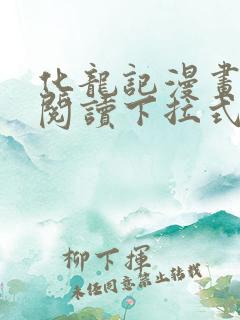 化龍記漫畫
閱讀下拉式
柳下揮
未經同意禁止轉載